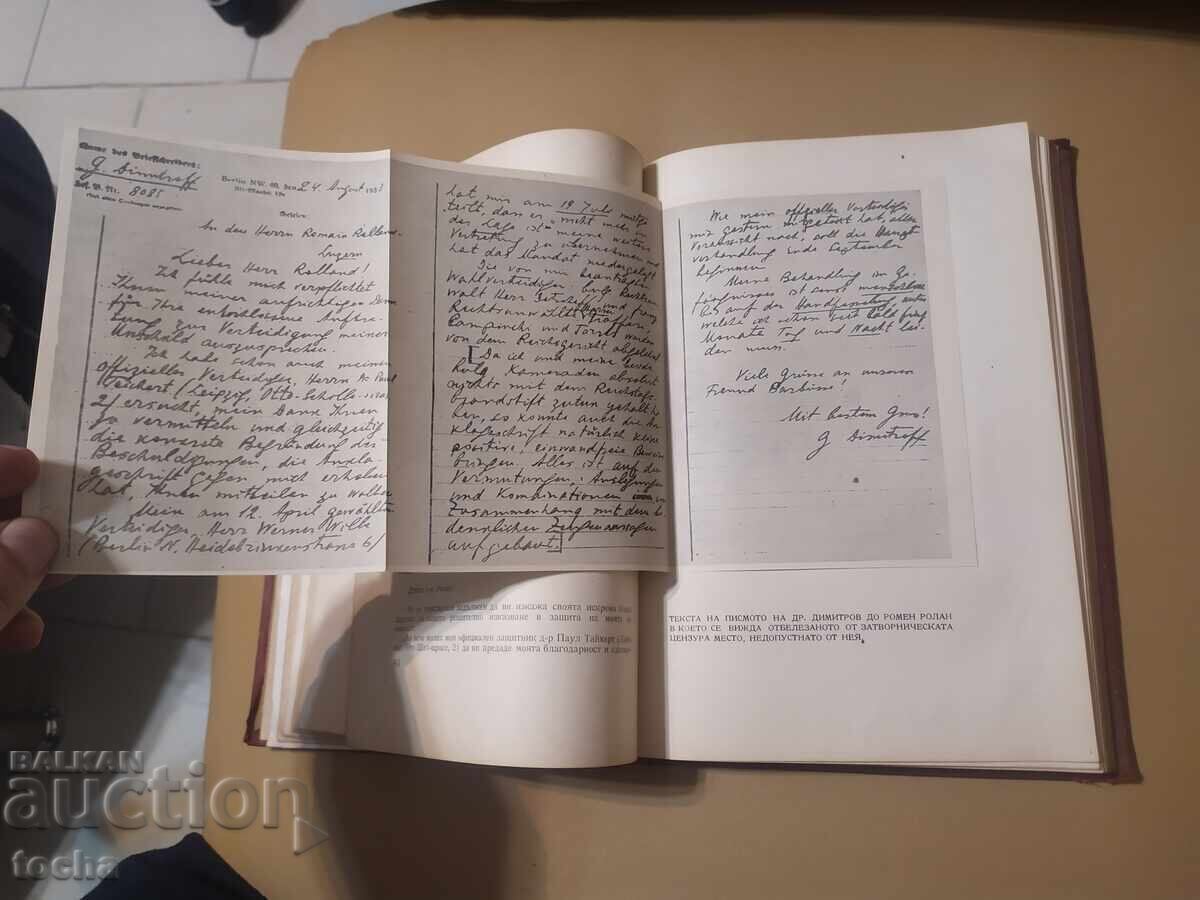 Name des Briefschreibers:
G. Dimitroff
Gef. B. Nr. 8085
Berlin NW. 40, den 24. August 1933
Alt-Moabit 12a
An den Herrn Romain Rolland.
Luzern
Lieber Herr Rolland!
Ich fühle mich verpflichtet
Ihnen meinen aufrichtigen Dank
für Ihre entschlossene Auftre-
tung zur Verteidigung meiner
Unschuld auszusprechen.
Ich habe schon auch meinen
offiziellen Verteidiger, Herrn Dr Paul
Teichert (Leipzig, Otto-Schills-
2) ersucht, mein Dank Ihnen
zu vermitteln und gleichzeitig
die konkrete Begründung der
Beschuldigungen, die Ankla-
geschrift gegen mich erhoben
hat, Ihnen mitteilen zu wollen.
Mein am 12. April gewählten
Verteidiger, Herr Werner Wille
(Berlin N.
hat mir am 19 Juli mitge
teilt, dass er "nicht mehr in
der Lage ist" meine weitere
Vertretung zu übernehmen und
hat das Mandat niedergelegt
Die von mir beantragten
Wahlverteidiger: bulg. Rechtsan
walt Herr Detscheff und franz.
Rechtsanwälte Herren Giafferi,
Campinchi und Torres wurden
von dem Reichsgericht abgelehnt
[Da ich und meine beide
bulg. Kameraden absolut
nichts mit dem Reichstags
brandstift zutun gehabt ha
ben, so konnte auch die An
klageschrift natürlich keine
positive, einwandfreie Beweise
bringen. Alles ist auf den
Vermutungen, Auslegungen
und Kombinationen im
Zusammenhang mit den
Zeugenaussagen
aufgebaut.]
Wie mein offizieller Verteidiger
mir gestern mitgeteilt hat, aller
Voraussicht nach, soll die Haupt
verhandlung Ende September
beginnen
Meine Behandlung im Ge-
fängnisse ist sonst
bis auf der Handfesselung, unter
welche ich schon seit bald fünf
Monate Tag und Nacht lei-
den muss.
Viele Grüsse an unseren
Freund Barbüsse!
Mit bestem Gruss!
G Dimitroff
ТЕКСТА НА ПИСМОТО НА ДР. ДИМИТРОВ ДО РОМЕН РОЛАН
В КОЕТО СЕ ВИЖДА ОТБЕЛЕЗАНОТО ОТ ЗАТВОРНИЧЕСКАТА
ЦЕНЗУРА МЕСТО, НЕДОПУСТНАТО ОТ НЕЯ.
да ви изкажа своята искрена
решително изказване в защита на моята
официален защитник д-р Паул Тайхерт
2) да ви предаде моята благодарност и
BALKAN
auction
tocha